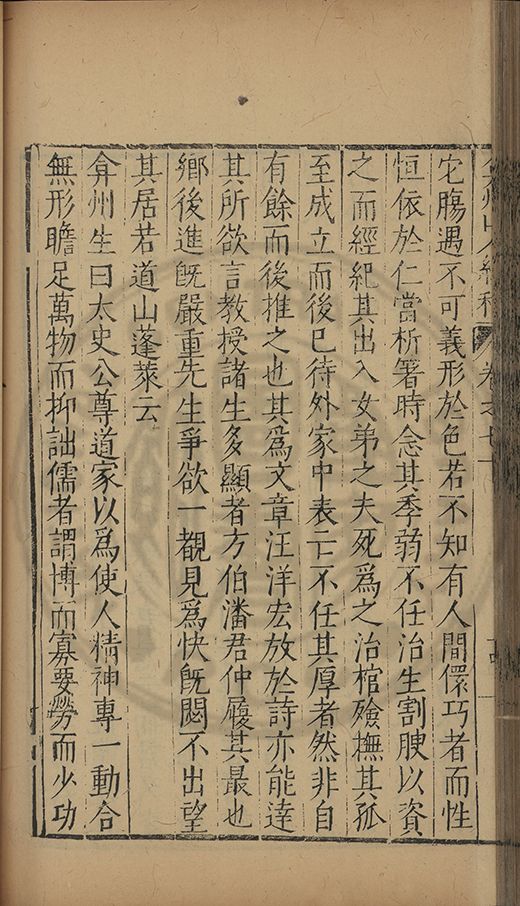 弇州山人續稿 卷之七十
它腸遇不可義形於色若不知有人間儇巧者而性
恒依於仁嘗析箸時念其季弱不任治生割腴以資
之而經紀其出入女弟之夫死為之治棺殮撫其孤
至成立而後已待外家中表亡不任其厚者然非自
有餘而後推之也其為文章汪洋宏放於詩亦能達
其所欲言教授諸生多顯者方伯潘君仲履其最也
鄉後進旣嚴重先生爭欲一覯見為快旣閟不出望
其居若道山蓬萊云
弇州生曰太史公尊道家以為使人精神專一動合
無形瞻足萬物而抑詘儒者謂博而寡要勞而少功